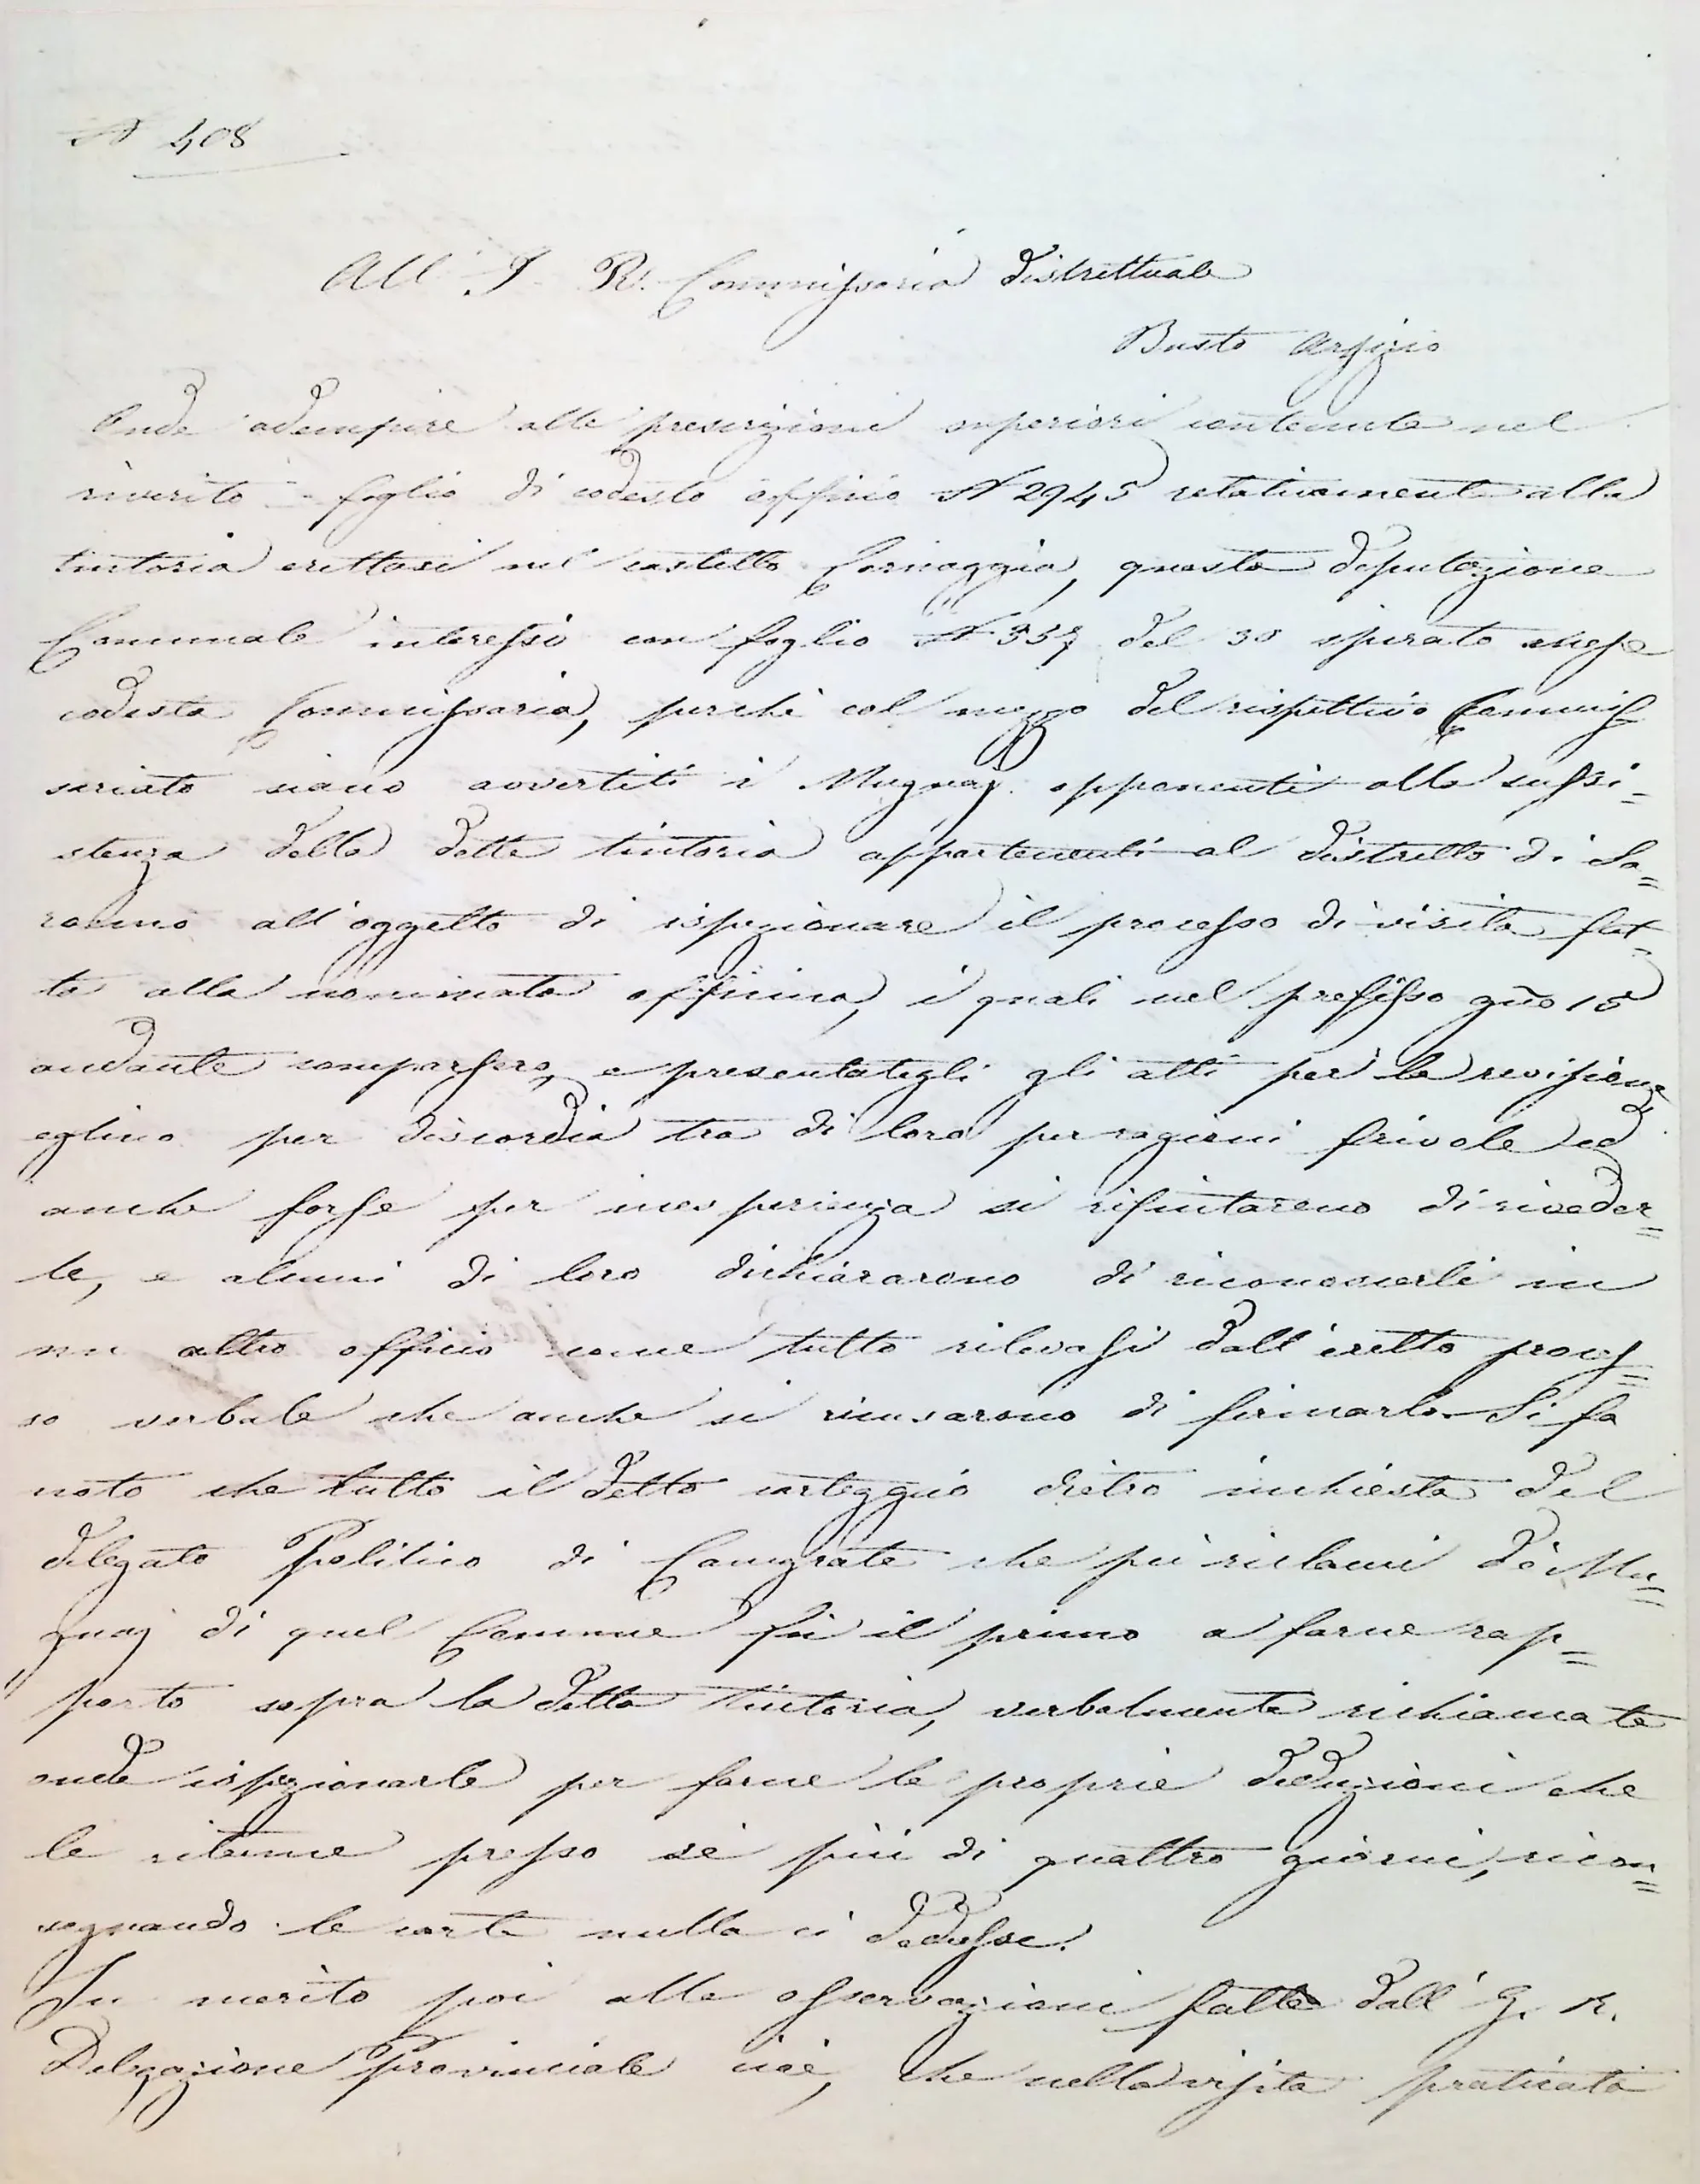 N 408
All' I. R. Commissaria distrettuale
Busto Arsizio
Onde adempire alle prescrizioni superiori contenute nel
riverito foglio di codesto officio N 2945 relativamente alla
tintoria erettasi nel castello Cornaggia, questa deputazione
Comunale interessò con foglio N 357 del 30 spirato mese
codesta Commissaria, perchè col mezzo del rispettivo Commis
sariato siano avvertiti i Mugnaj opponenti alla sussi=
stenza della detta tintoria appartenenti al distretto di Sa=
ronno all'oggetto di ispezionare il processo di visita fat=
ta alla nominata officina, i quali nel prefisso gno 15
andante comparsero, e presentategli gli atti per la revisione
eglino per discordia tra di loro per ragioni frivole ed
anche forse per inesperienza si rifiutarono di riveder=
le, e alcuni di loro dichiararono di riconoscerli in
un altro officio come tutto rilevasi dall'eretto proces=
so verbale che anche si ricusarono di firmarlo. Si fa
noto che tutto il detto carteggio dietro inchiesta del
delegato Politico di Canegrate che pei riclami dè Mu=
gnaj di quel Comune fù il primo a farne rap=
porto sopra la detta tintoria, verbalmente richiamate
onde ispezionarle per farne le proprie deduzioni che
le ritenne presso sè più di quattro giorni, ricon=
segnando le carte nulla ci dedusse.
In merito poi alle osservazioni fatte dall' I. R.
Delegazione Provinciale cioè, che nella visita praticata